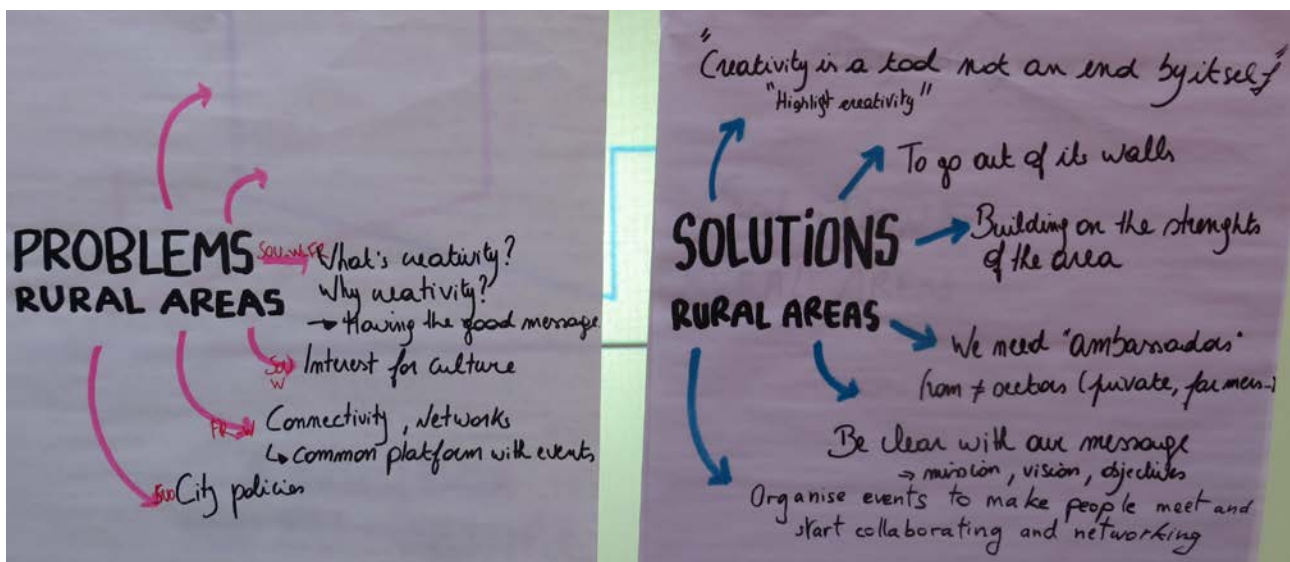 PROBLEMS
RURAL AREAS
SOU-W-FR What's creativity?
Why creativity?
→ Having the good message
SOU W Interest for culture
FR-W Connectivity, Networks
↳ Common platform with events
SUO City policies
"Creativity is a tool not an end by itself"
"Highligt creativity"
To go out of its walls
SOLUTIONS
RURAL AREAS
Building on the strenghts
of the area
We need "ambassadors"
from ≠ sectors (private, farmers...)
Be clear with our message
→ mission, vision, objectives
Organise events to make people meet and
start collaborating and networking